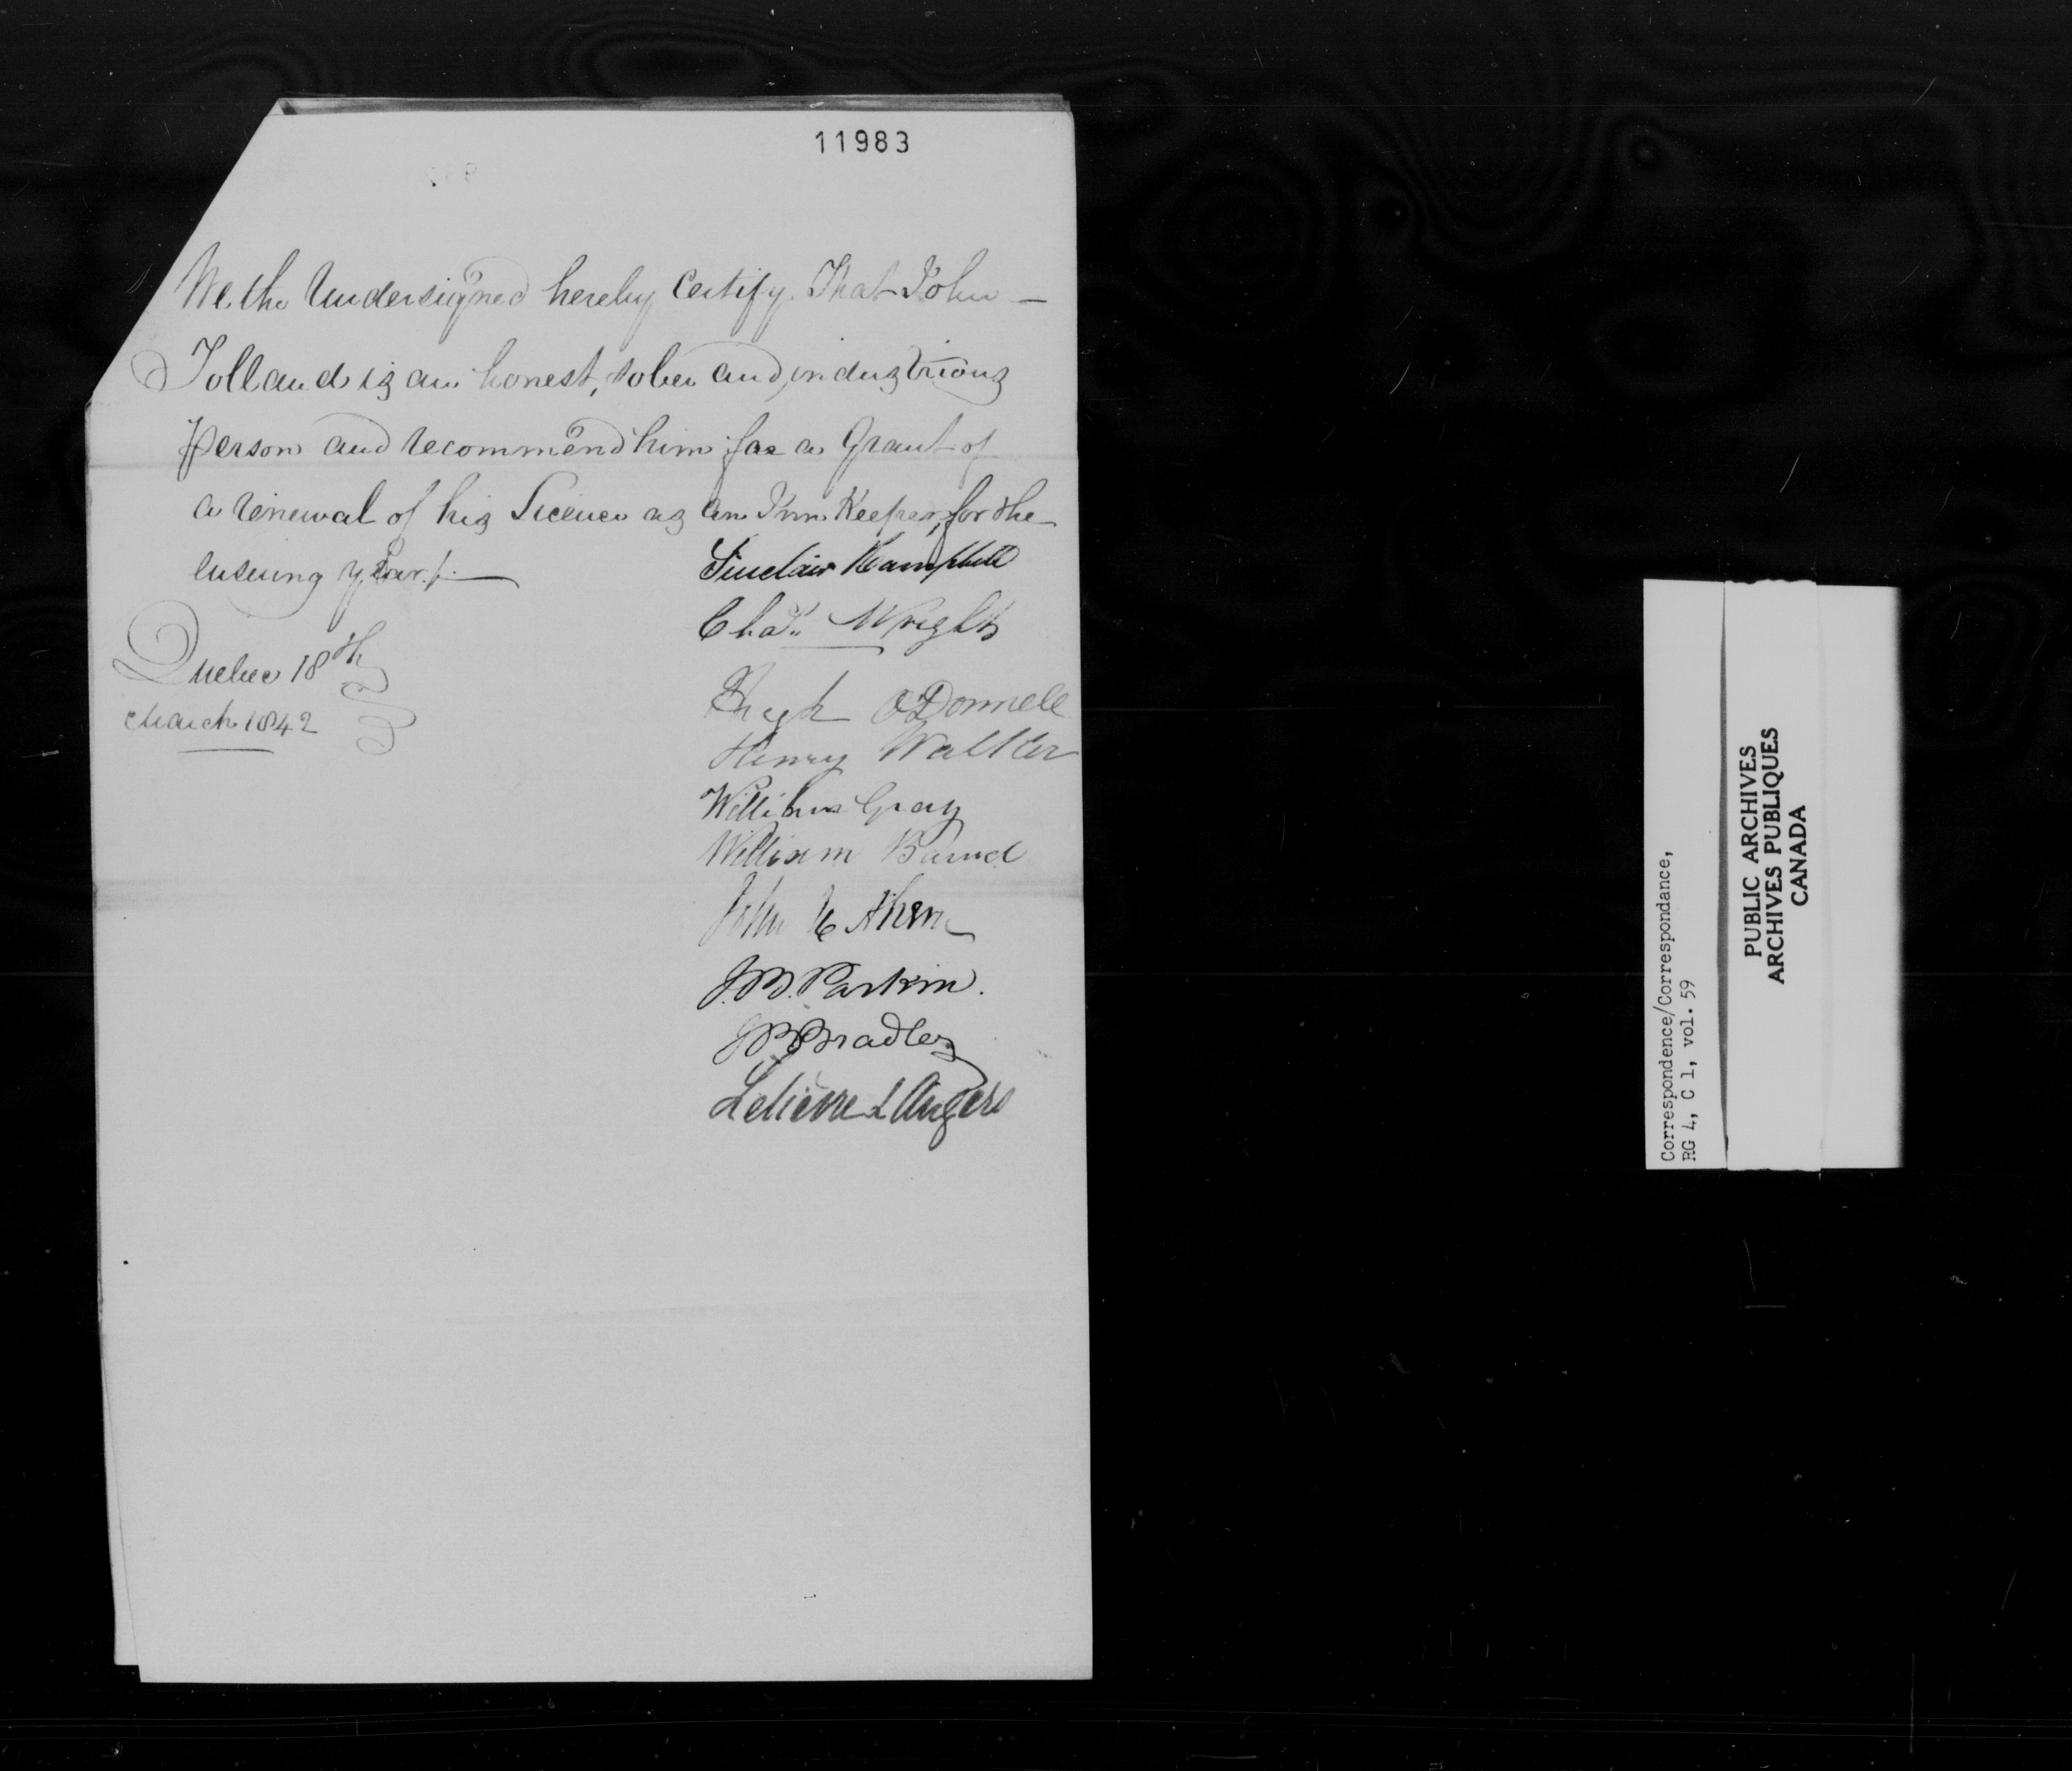 11983
We the Undersigned hereby Certify That John —
Tolland is an honest, sober and industrious
person and recommend him for a Grant of
a renewal of his Licence as an Inn Keeper, for the
ensuing year./. —
Quebec 18th
March 1842
Sinclair Kamphell
Chas. Wright
Hugh O'Donnell
Henry Walker
William Gray
William Baird
John Ahern
J.B. Parkin.
Bradley
Lelievre & Angers
Correspondence/Correspondance,
RG 4, C 1, vol. 59
PUBLIC ARCHIVES
ARCHIVES PUBLIQUES
CANADA